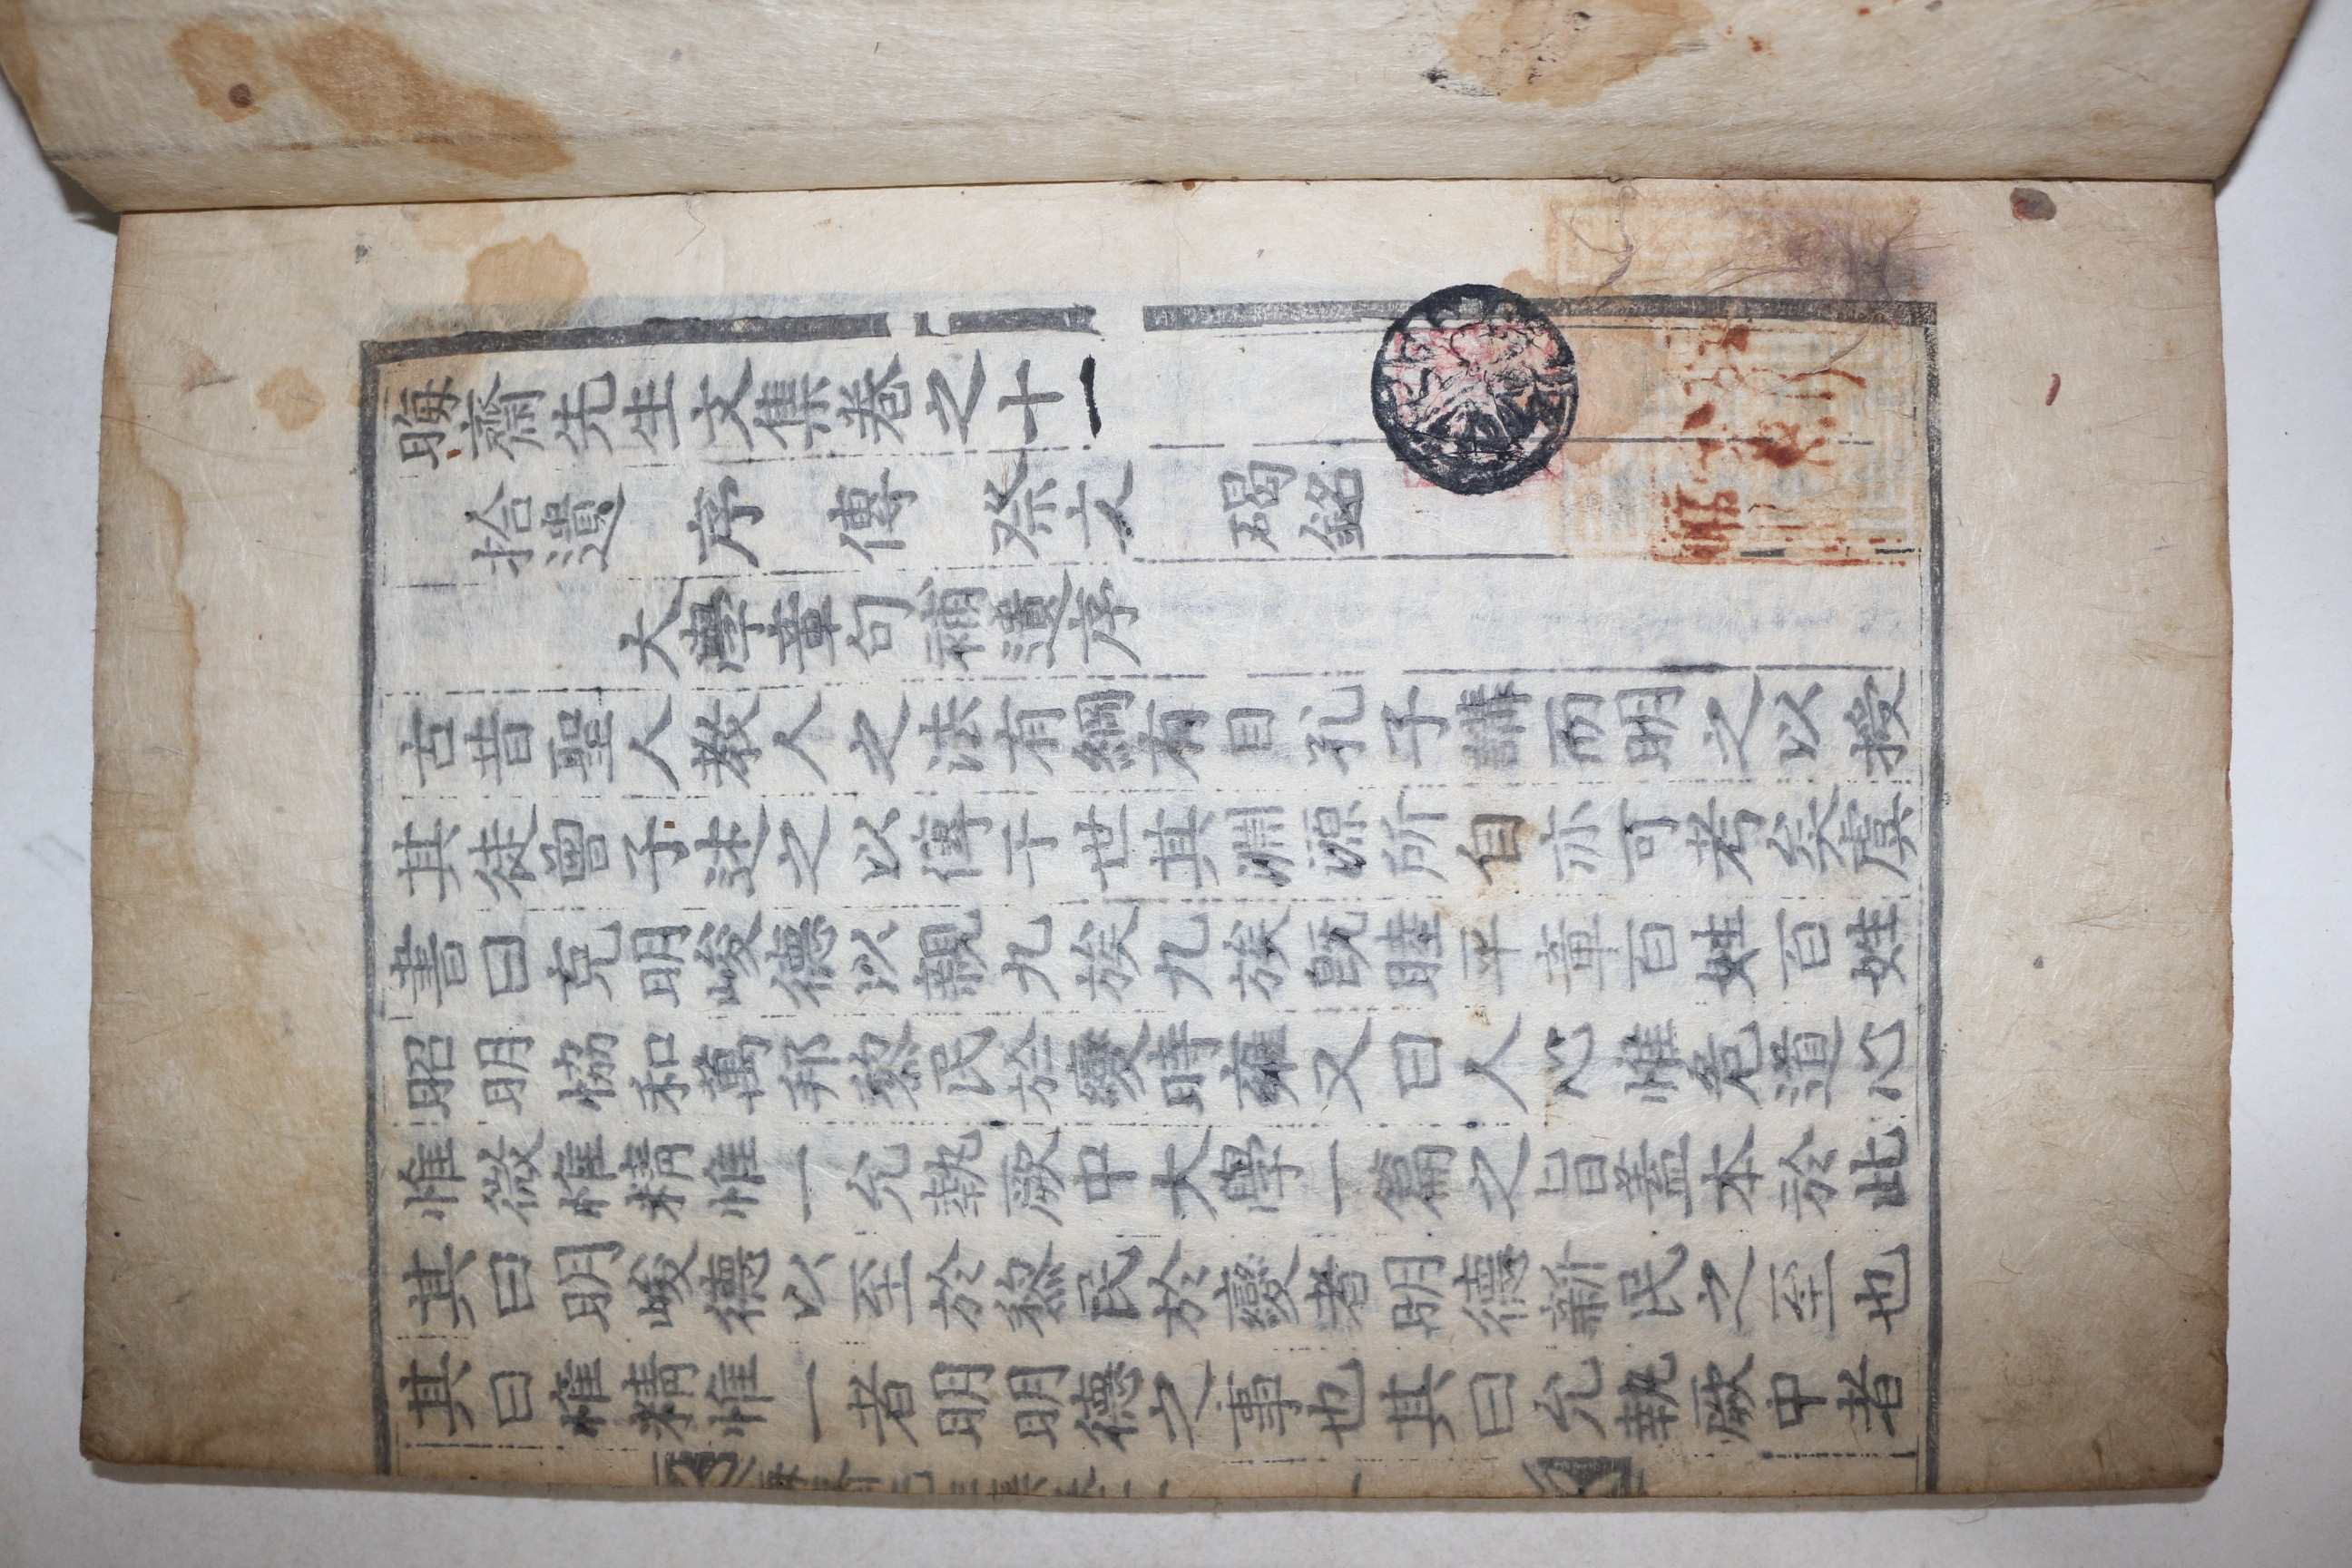 晦齋先生文集卷之十一
拾遺 序 傳 祭文 碣銘
大學章句補遺序
古昔聖人教人之法有綱有目孔子講而明之以授
其徒曾子述之以傳于世其淵源所自亦可考矣虞
書曰克明峻德以親九族九族既睦平章百姓百姓
昭明協和萬邦黎民於變時雍又曰人心惟危道心
惟微惟精惟一允執厥中大學一篇之旨蓋本於此
其曰明峻德以至於黎民於變者明德新民之至也
其曰惟精惟一者明明德之事也其曰允執厥中者